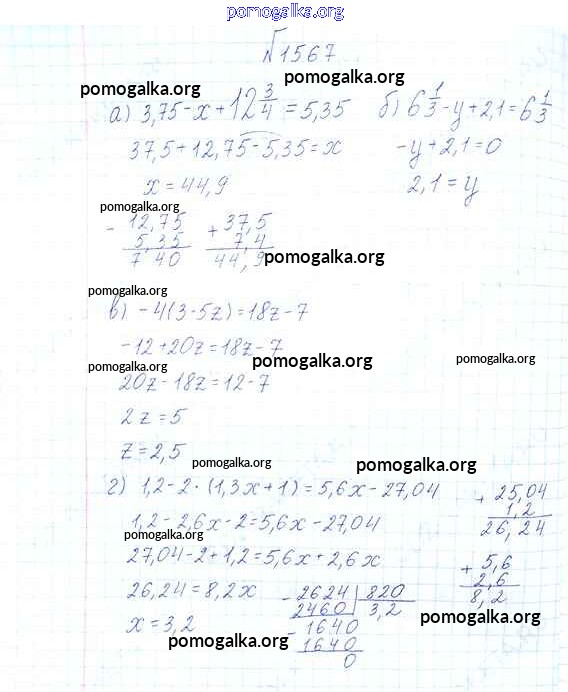 pomogalka.org
№1567
pomogalka.org pomogalka.org
а) 3,75-x+12 3/4=5,35 б) 6 1/3-y+2,1=6 1/3
37,5+12,75-5,35=x -y+2,1=0
x=44,9 2,1=y
pomogalka.org
- 12,75 + 37,5
5,35 7,4
7 40 44,9 pomogalka.org
pomogalka.org
в) -4(3-5z)=18z-7
-12+20z=18z-7
pomogalka.org pomogalka.org pomogalka.org
20z-18z=12-7
2z=5
z=2,5
pomogalka.org pomogalka.org
г) 1,2-2·(1,3x+1)=5,6x-27,04 + 25,04
1,2-2,6x-2=5,6x-27,04 1,2
pomogalka.org 26,24
27,04-2+1,2=5,6x+2,6x + 5,6
26,24=8,2x - 2624 820 2,6
2460 3,2 8,2
x=3,2 - 1640 pomogalka.org
pomogalka.org 1640
0